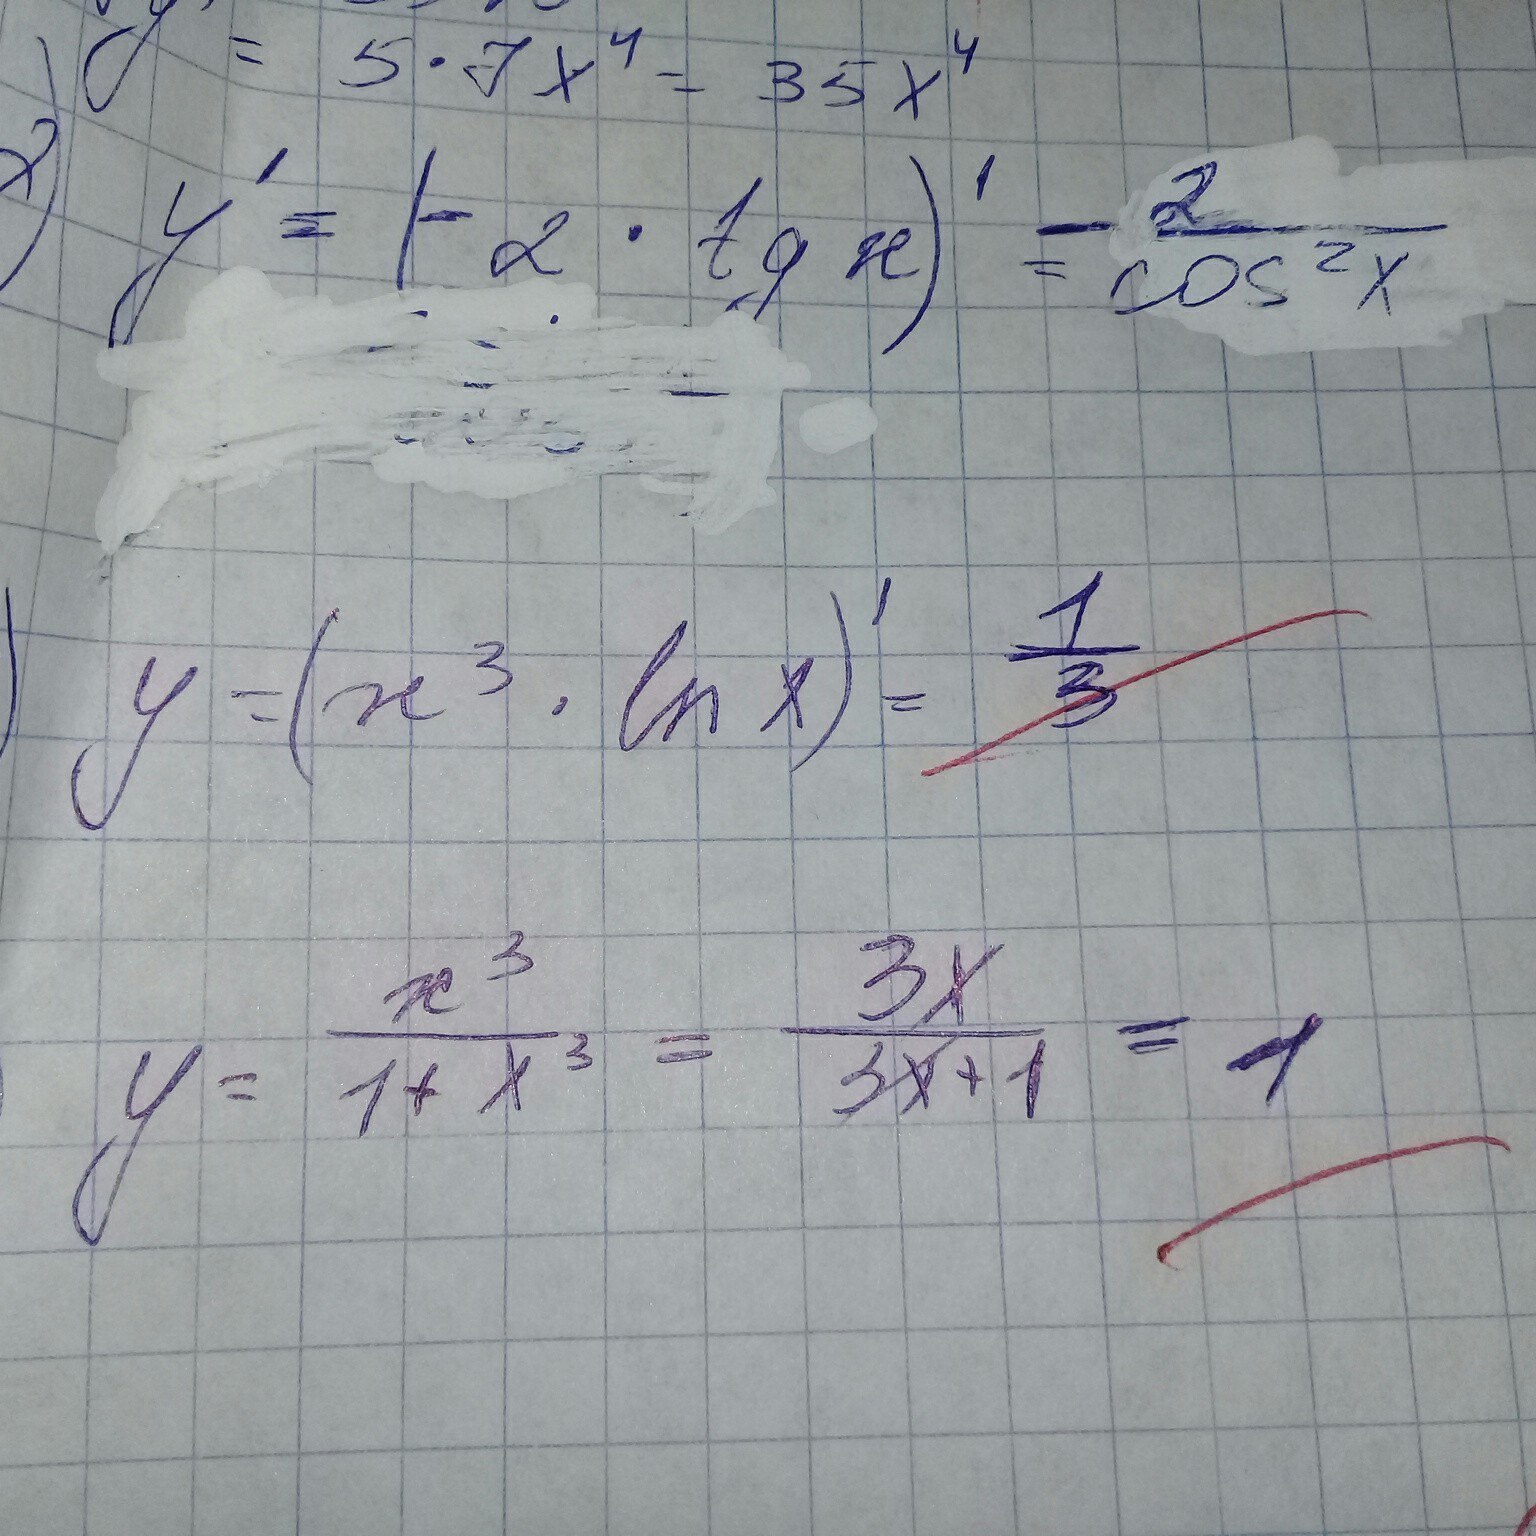 y = 5·7x⁴ = 35x⁴
2) y' = (-2 · tg x)' = - 2/cos²x
) y = (x³ · ln x)' = 1/3
y = x³/(1+x³) = 3x/(3x+1) = 1